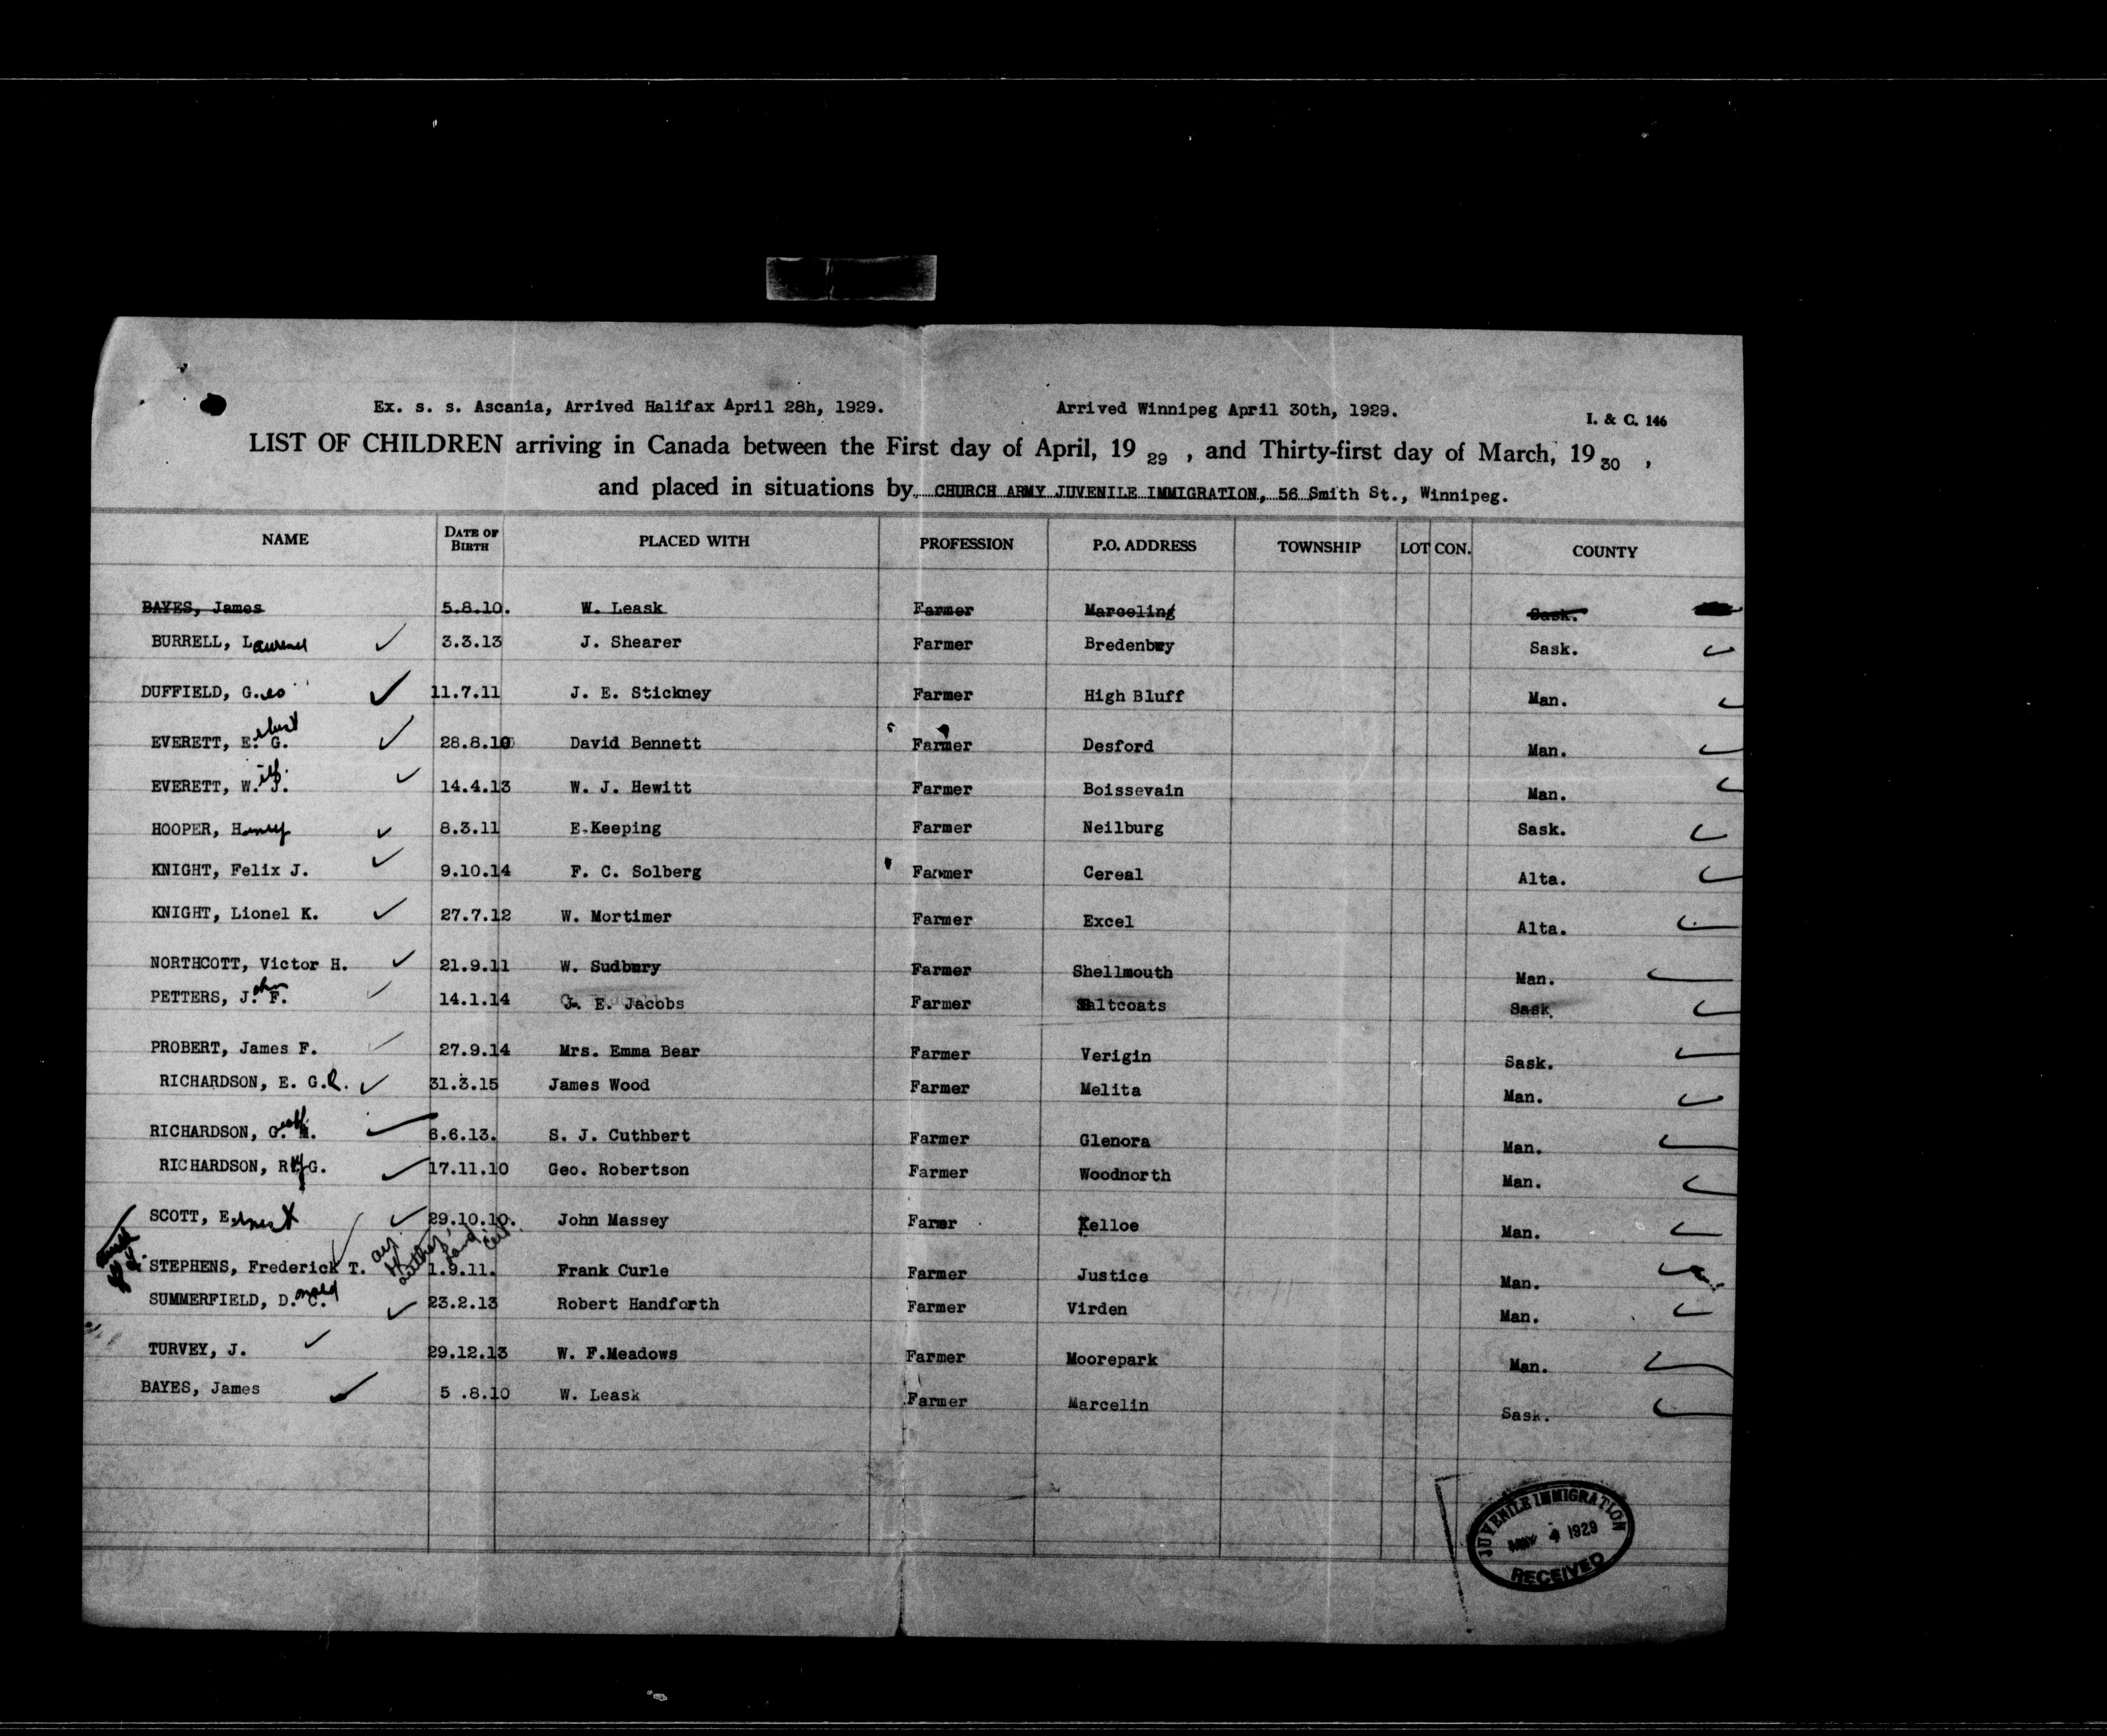 Ex. s. s. Ascania, Arrived Halifax April 28h, 1929. Arrived Winnipeg April 30th, 1929.
I. & C. 146
LIST OF CHILDREN arriving in Canada between the First day of April, 19 29 , and Thirty-first day of March, 19 30 ,
and placed in situations by CHURCH ARMY JUVENILE IMMIGRATION, 56 Smith St., Winnipeg.
NAME DATE OF BIRTH PLACED WITH PROFESSION P.O. ADDRESS TOWNSHIP LOT CON. COUNTY
BAYES, James 5.8.10. W. Leask Farmer Marceling Sask.
BURRELL, Laurence 3.3.13 J. Shearer Farmer Bredenbury Sask.
DUFFIELD, G.eo 11.7.11 J. E. Stickney Farmer High Bluff Man.
EVERETT, E. G. 28.8.10 David Bennett Farmer Desford Man.
EVERETT, W.ilf. J. 14.4.13 W. J. Hewitt Farmer Boissevain Man.
HOOPER, Henry 8.3.11 E.Keeping Farmer Neilburg Sask.
KNIGHT, Felix J. 9.10.14 F. C. Solberg Farmer Cereal Alta.
KNIGHT, Lionel K. 27.7.12 W. Mortimer Farmer Excel Alta.
NORTHCOTT, Victor H. 21.9.11 W. Sudbury Farmer Shellmouth Man.
PETTERS, J.ohn F. 14.1.14 J. E. Jacobs Farmer Saltcoats Sask.
PROBERT, James F. 27.9.14 Mrs. Emma Bear Farmer Verigin Sask.
RICHARDSON, E. G.R. 31.3.15 James Wood Farmer Melita Man.
RICHARDSON, G.eoff. M. 6.6.13. S. J. Cuthbert Farmer Glenora Man.
RICHARDSON, Roy G. 17.11.10 Geo. Robertson Farmer Woodnorth Man.
SCOTT, Ernest 29.10.10. John Massey Farmer Kelloe Man.
STEPHENS, Frederick T. 1.9.11. Frank Curle Farmer Justice Man.
SUMMERFIELD, D.onald C. 23.2.13 Robert Handforth Farmer Virden Man.
TURVEY, J. 29.12.13 W. F.Meadows Farmer Moorepark Man.
BAYES, James 5 .8.10 W. Leask Farmer Marcelin Sask.
JUVENILE IMMIGRATION
MAY 4 1929
RECEIVED